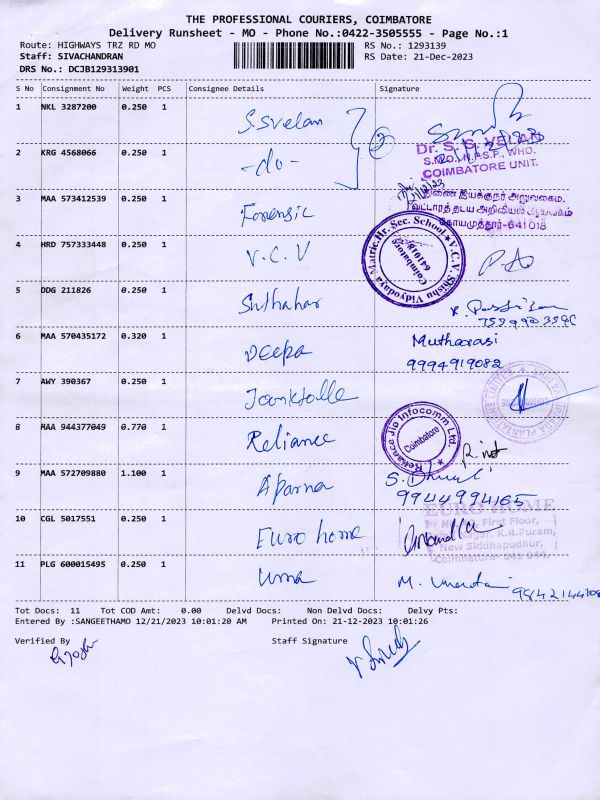 THE PROFESSIONAL COURIERS, COIMBATORE
Delivery Runsheet - MO - Phone No.:0422-3505555 - Page No.:1
Route: HIGHWAYS TRZ RD MO
RS No.: 1293139
Staff: SIVACHANDRAN
RS Date: 21-Dec-2023
DRS No.: DCJB129313901
S No Consignment No Weight PCS Consignee Details Signature
1 NKL 3287200 0.250 1 S.Svelan
Dr. S. S. VELAN
S.M.O., N.P.S.P., WHO.
COIMBATORE UNIT.
2 KRG 4568066 0.250 1 -do-
3 MAA 573412539 0.250 1 Forensic
இயக்குநர் அலுவலகம்,
வட்டாரத் தடய அறிவியல்
கோயமுத்தூர்-641018
4 HRD 757333448 0.250 1 V.C.V
V.C.V. Shishu Vidyodaya Matric.Hr. Sec. School
Coimbatore
641018
5 DDG 211826 0.250 1 Suthahar
6 MAA 570435172 0.320 1 Deepa Mutharasi
9994919082
7 AWY 390367 0.250 1
8 MAA 944377049 0.770 1 Reliance
Reliance Jio Infocomm Ltd.
Coimbatore
9 MAA 572709880 1.100 1 Aparna
9944994165
10 CGL 5017551 0.250 1 Euro home
EURO HOME
First Floor,
Nagar, K.R.Puram,
New Siddhapudur,
Coimbatore- 641 044.
11 PLG 600015495 0.250 1 Uma
Tot Docs: 11 Tot COD Amt: 0.00 Delvd Docs: Non Delvd Docs: Delvy Pts:
Entered By :SANGEETHAMO 12/21/2023 10:01:20 AM Printed On: 21-12-2023 10:01:26
Verified By Staff Signature